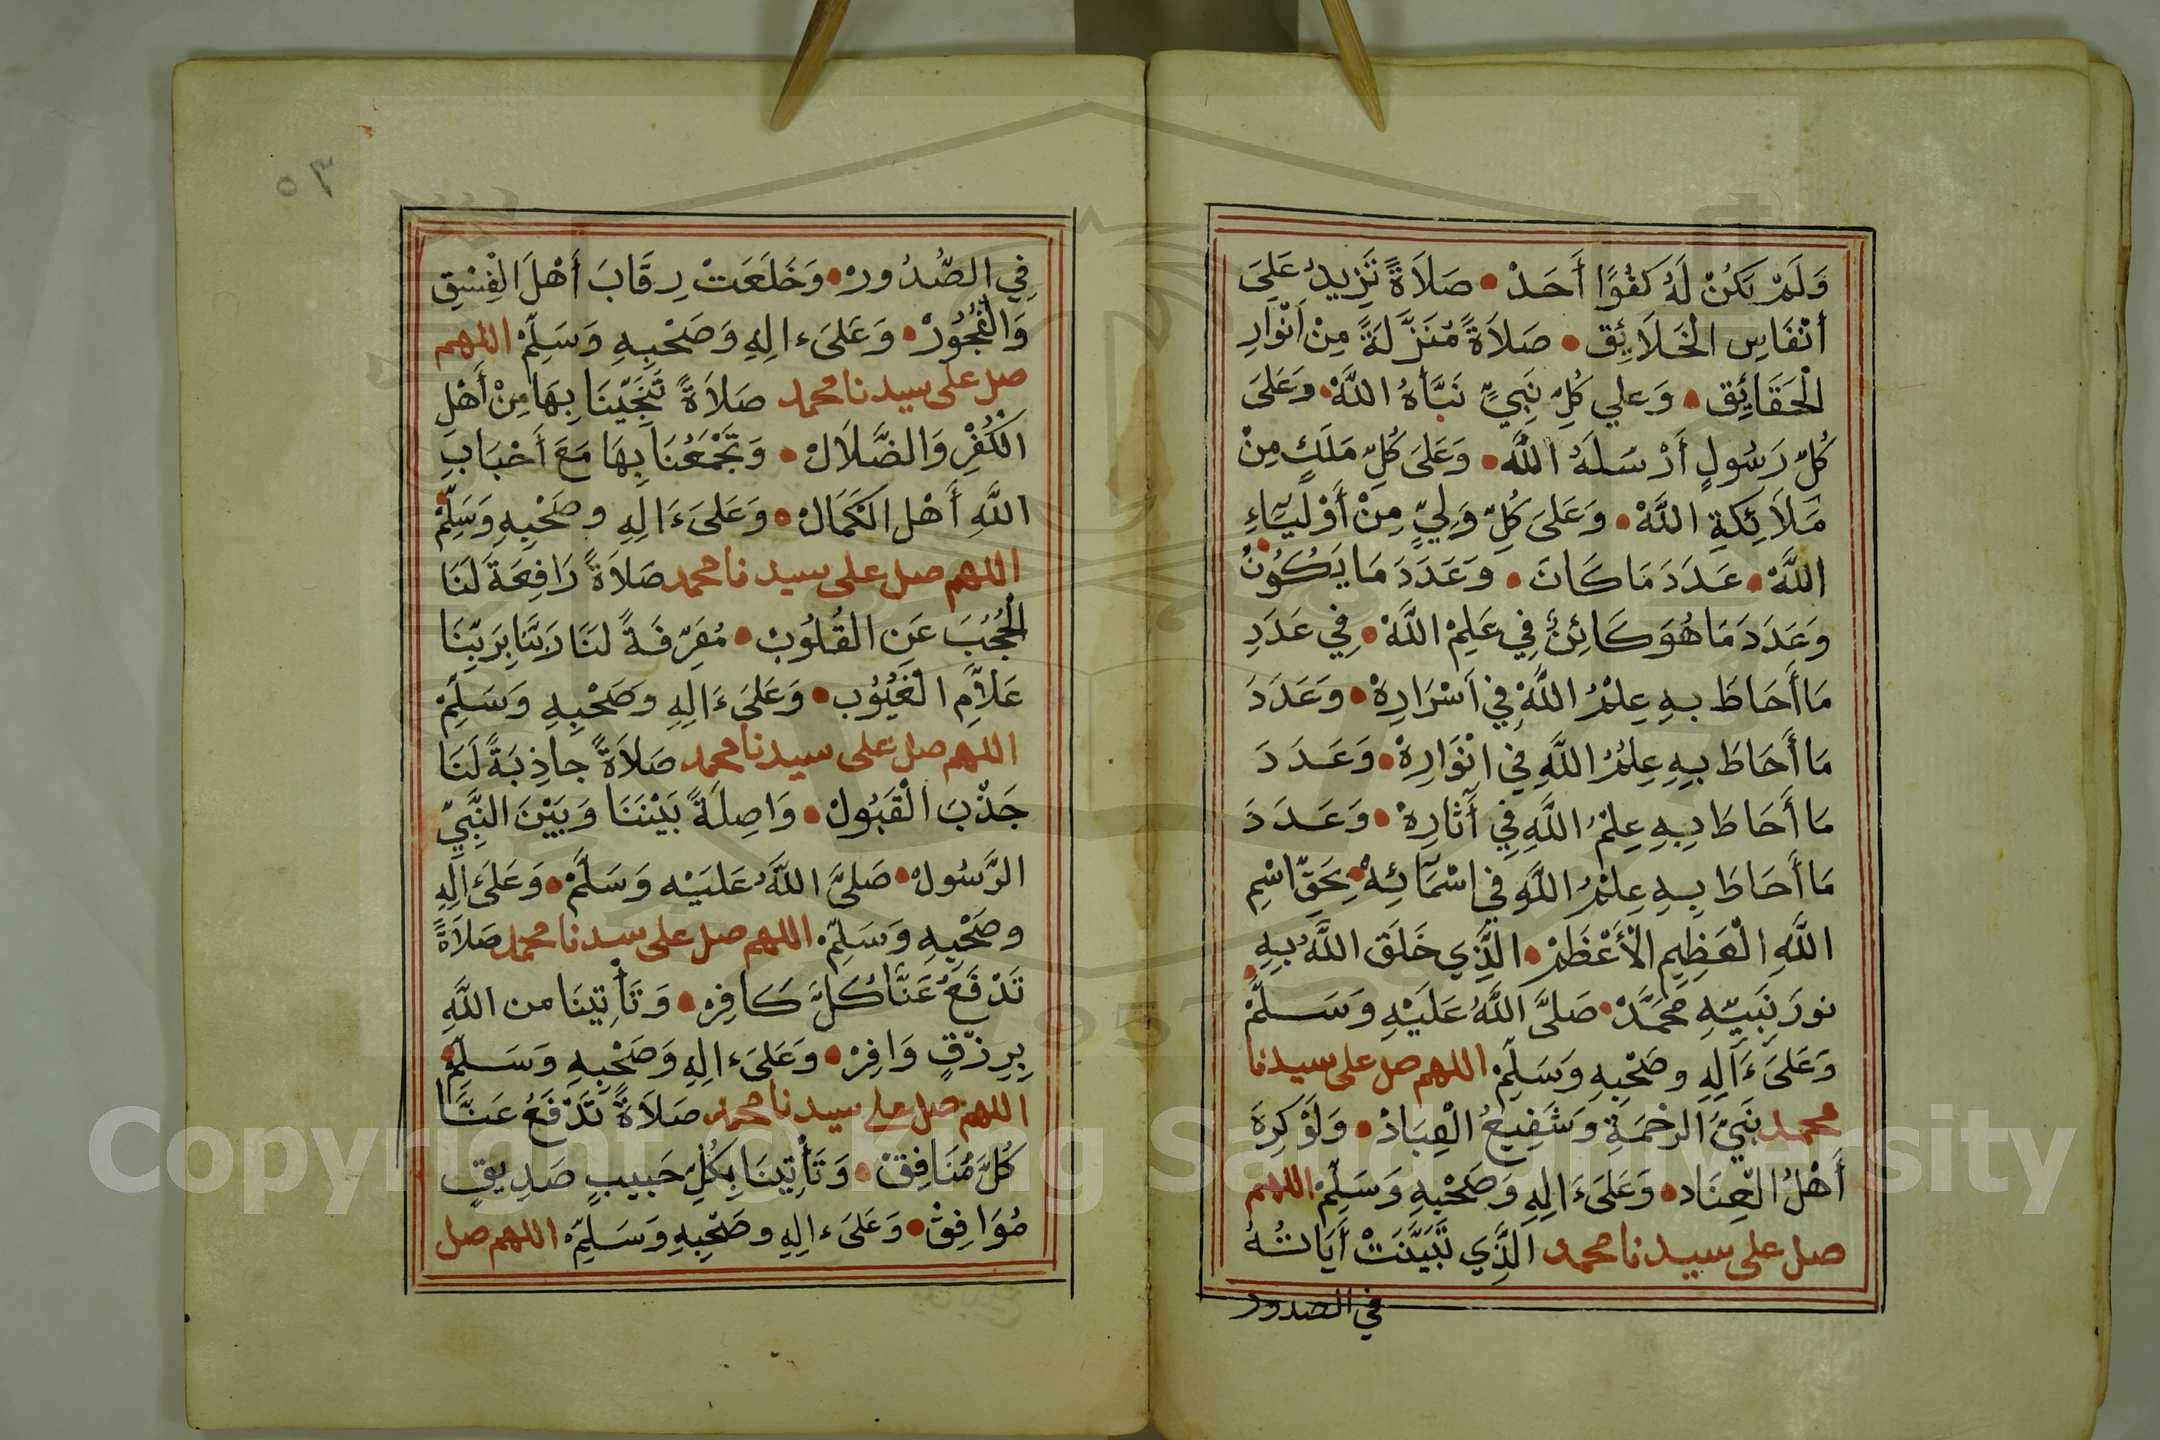 وَلَمْ يَكُنْ لَهُ كُفُوًا أَحَدْ • صَلَاةً تَزِيدُ عَلَى
أَنْفَاسِ الْخَلَائِقِ • صَلَاةً مُنَزَّلَةً مِنْ أَنْوَارِ
الْحَقَائِقِ • وَعلي كُلِّ نَبِيٍّ نَبَّأهُ اللَّهْ • وَعَلَى
كُلِّ رَسُولٍ أَرْسَلَهُ اللَّه • وَعَلَى كُلِّ مَلَكٍ مِنْ
مَلَائِكَةِ اللَّهْ • وَعَلَى كُلِّ وَلِيٍّ مِنْ أَوْلِيَاءِ
اللَّهْ • عَدَدَ مَا كَانَ • وَعَدَدَ مَا يَكُونُ •
وَعَدَدَ مَا هُوَ كَائِنٌ فِي عَلِمْ اللَّهْ • فِي عَدَدِ
مَا أَحَاطَ بِهِ عِلْمُ اللَّهِ فِي أَسْرَارِهْ • وَعَدَدَ
مَا أَحَاطَ بِهِ عِلْمُ اللَّهِ فِي انْوَارِهْ • وَعَدَدَ
مَا أَحَاطَ بِهِ عِلْمُ اللَّهِ فِي آثَارِهْ • وَعَدَدَ
مَا أَحَاطَ بِهِ عِلْمُ اللَّهِ فِي اسْمَآئِهْ • بِحَقِّ اسْمِ
اللَّهِ الْعَظِيمِ الْأَعْظَمْ • الَّذِي خَلَقَ اللَّهُ بِهِ
نورَ نَبِيِّهِ مُحَمَّدْ • صَلَّى اللَّهُ عَلَيْهِ وَسَلَّمْ •
وَعَلَىءَالِهِ وصَحْبِهِ وَسَلِّمْ اللهم صل على سيدنا
محمد نَبِيِّ الرحْمَةِ وَشَفِيعُ الْعِبَادْ • وَلَوْ كَرِهَ
أَهْلُ الْعِنَاد • وَعَلَىءَالِهِ وَصَحْبِهِ وَسَلِّمْ اللهم
صل على سيدنا محمد الَّذِي تَبَيَّنَتْ أَيَاتُهُ
في الصدور
٥٣
فِي الصُّدُورْ • وَخَلَعَتْ رِقَابَ أَهْلَ الْفِسْقِ
وَالْفُجُورْ • وَعَلَىءالِهِ وَصَحْبِهِ وَسَلِّمْ اللهم
صل على سيدنا محمد صَلَاةً تُنَجِّينَا بِهَا مِنْ أَهْلِ
الْكُفْرِ وَالضَّلَالْ • وَتَجْمَعُنَا بِهَا مَعَ أَحْبَابِ
اللَّهِ أَهْل الْكَمَالْ • وَعَلَىءَالِهِ وصَحْبِهِ وَسَلِّمْ •
اللهم صل على سيدنا محمد صَلَاةً رَافِعَةً لَنَا
الْحُجُبَ عَنِ الْقُلُوبْ • مُعَرِّفَةً لَنَا رَبَّنَا بِرَبِّنَا
عَلَّامِ الْغُيُوبِ • وَعَلَىءَالِهِ وَصَحْبِهِ وَسَلِّمْ
اللهم صل على سيدنا محمد صَلَاةً جاذِبَةً لَنَا
جَذْبَ الْقَبُولْ • وَاصِلَةً بَيْنَنَا وَبَيْنَ النَّبِيِّ
الرَّسُولْ • صَلَّى اللَّهُ عَلَيْه وَسَلَّمْ • وَعَلَىءَالِهِ
وصَحْبِهِ وَسَلِّمْ اللهم صل على سيدنا محمد صَلَاةً
تَدْفَعُ عَنَّا كُلَّ كَافِرْ • وَتَأْتِينَا من اللَّهِ
بِرِزْقٍ وَافِرْ • وَعَلَىءالِهِ وَصَحْبِهِ وَسَلِّمْ •
اللهم صل على سيدنا محمد صَلَاةً تَدْفَعُ عَنَّا
كُلَّ مُنَافِقْ • وَتَأْتِينَا بِكُلِّ حَبيبٍ صَدِيقٍ
مُوَافِقْ • وَعَلَىءالِهِ وصَحْبِهِ وَسَلِّمْ اللهم صل
Copyright © King Saud University